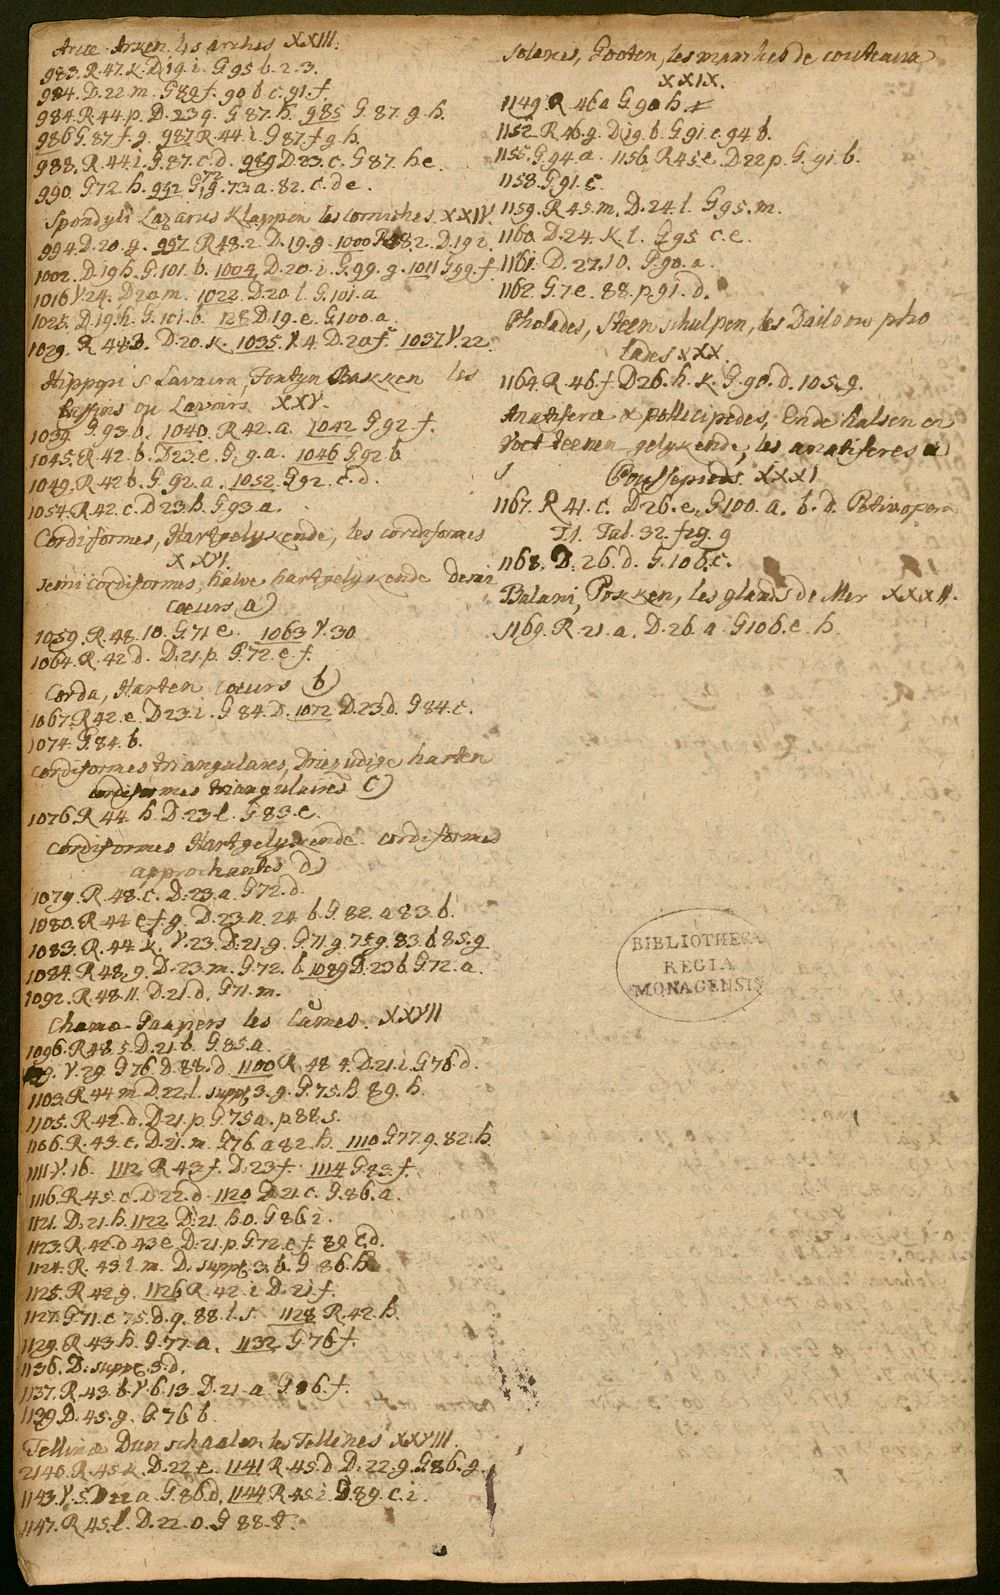 Arcæ Arken. les arches XXIII.
983. R. 47. K. D. 19. i. G 95 b. 2. 3.
984. D. 22. m. G 89 f. 90 b c. 91. f.
984. R 44 p. D. 23 g. G 87. h. 985 G. 87. g. h.
986 G. 87. f. g. 987 R. 44. i. G 87. f. g. h.
988. R. 44 i. G. 87. c. d. 989 D. 23. c. G 87. h e.
990. G 72. h. 992 G. 72 g. 73. a. 82. c. d e.
Spondyli Lazarus Klappen les corniches. XXIV
994. D. 20. g. 997. R 48. 2. D. 19. g. 1000 R 48. 2. D. 19 i.
1002. D. 19 h. G. 101. b. 1004. D. 20. i. G. 99. g. 1011 G 99. f
1016 V. 24. D 20 m. 1022. D. 20 l. G. 101. a
1025. D. 19. h. G. 101. b. 128 D. 19. e. G 100. a.
1029. R 48 3. D. 20. K. 1035. V. 4. D. 20 f. 1037. V. 22.
Hippopi s Lavacra, Fontyn Bakken les
Bassins ou Lavoirs XXV.
1039. G. 93. b. 1040. R 42. a. 1042 G 92. f.
1045. R 42. b. D 23. e. G. 9. a. 1046 G 92 b
1049. R 42 b. G. 92. a. 1052. G 92. c. d.
1054. R 42. c. D 23. h. G 93 a.
Cordiformes, Hartgelykende, les cordiformes
XXVI.
semi cordiformes, halve hartgelykende demi
cœurs a)
1059. R. 48. 10. G. 71 e 1063 V. 30
1064. R. 42 d. D. 21. p. G. 72. e f.
Corda, Harten cœurs b)
1067. R 42. e. D 23. i. G 84. D. 1072 D. 23. d. G 84. c.
1074. G. 84. b.
Cordiformes triangulares, Driezydige harten
cordiformes triangulaires c)
1076. R 44 h. D. 23 l. G 83. e.
Cordiformes Hartgelykende cordiformes
approchantes d)
1079. R. 48. c. D: 23. a. G 72. d.
1080. R. 44 e. f. g. D. 23. n. 24 b. G. 82. a 83. b.
1083. R. 44. K. V. 23. D. 21. g. G. 71 g. 75 g. 83. b 85. g
1084. R 48. g. D. 23. m. G. 72. b. 1089 D. 23 b. G 72. a.
1092. R. 48. 11. D. 21. d. G 71. m.
Chamæ Gaapers les Cames. XXVII
1096. R 48. 5. D. 21. b. G. 85. a.
99. V. 29 G 76. D. 88. d. 1100 R. 48 4. D. 21. i. G 76. d.
1103. R 44 m D. 22. l. suppl. 3. g. G. 75. h. 89. h.
1105. R 42. d. D 21. p. G 75 a. p. 88. s.
1106. R. 43. c. D. 21. m. G 76. a 82. h. 1110 G 77. g. 82. h.
1111. V. 16. 1112 R. 43 f. D. 23 f. 1114 G 83 f.
1116. R. 45. c. D 22. d. 1120 D. 21 c. G. 86. a.
1121. D. 21. h. 1122 D. 21. h o. G 86. i.
1123. R. 42. d 43 e. D. 21. p. G 72. e f. 89 c. d.
1124. R. 43. l. m. D. suppl. 3. b. G 86. h.
1125. R 42. g. 1126 R. 42. i D. 21 f.
1127. G 71. c 75. d. q. 88. l. s. 1128. R. 42. h.
1129. R 43. h. G. 77. a. 1132 G 76 f.
1136. D. suppl. 3. d.
1137. R. 43. b. V. 6. 13. D. 21. a. G. 86. f.
1139. D. 45. g. G. 76. b.
Tellinæ Dunschaalen les Tellines XXVIII.
2140. R. 45. K. D. 22 e. 1141 R. 45. d D. 22. g. G 86. g.
1143. V. 5. D 22 a. G. 86. d. 1144 R. 45. i. G. 89. c. i.
1147. R 45. l. D. 22. o. G 88. t.
Solenes, Gooten, les manches de couteaux
XXIX.
1149. R 46 a G. 90 h.
1152 R 46. g. D 19. b. G. 91. c. 94 b.
1155. G. 94. a. 1156. R 45 e. D. 22 p. G. 91. b.
1158. G. 91. c.
1159. R. 45. m. D. 24. l. G. 95. m.
1160. D. 24. K. l. G. 95 c. e.
1161. D. 27. 10. G. 90. a.
1162. G. 7 e. 88. p. 91. d.
Pholades, Steenschulpen, les Dails ou pho
lades XXX.
1164. R. 46. f. D 26. h. K. G. 90. d. 105. g.
Anatiferæ & pollicipedes, Endehalsen en
Voet teenen gelykende, les anatiferes &
Poussepieds. XXXI
1167. R 41. c. D 26. e. G 100. a. b. d. Petiver opera
T. 1. Tab. 32. fig. 9
1168. D. 26. d. G. 106. c.
Balani, Pokken, les glands de Mer XXXII.
1169. R. 21. a. D. 26. a. G 106. e. h.
BIBLIOTHECA
REGIA
MONACENSIS